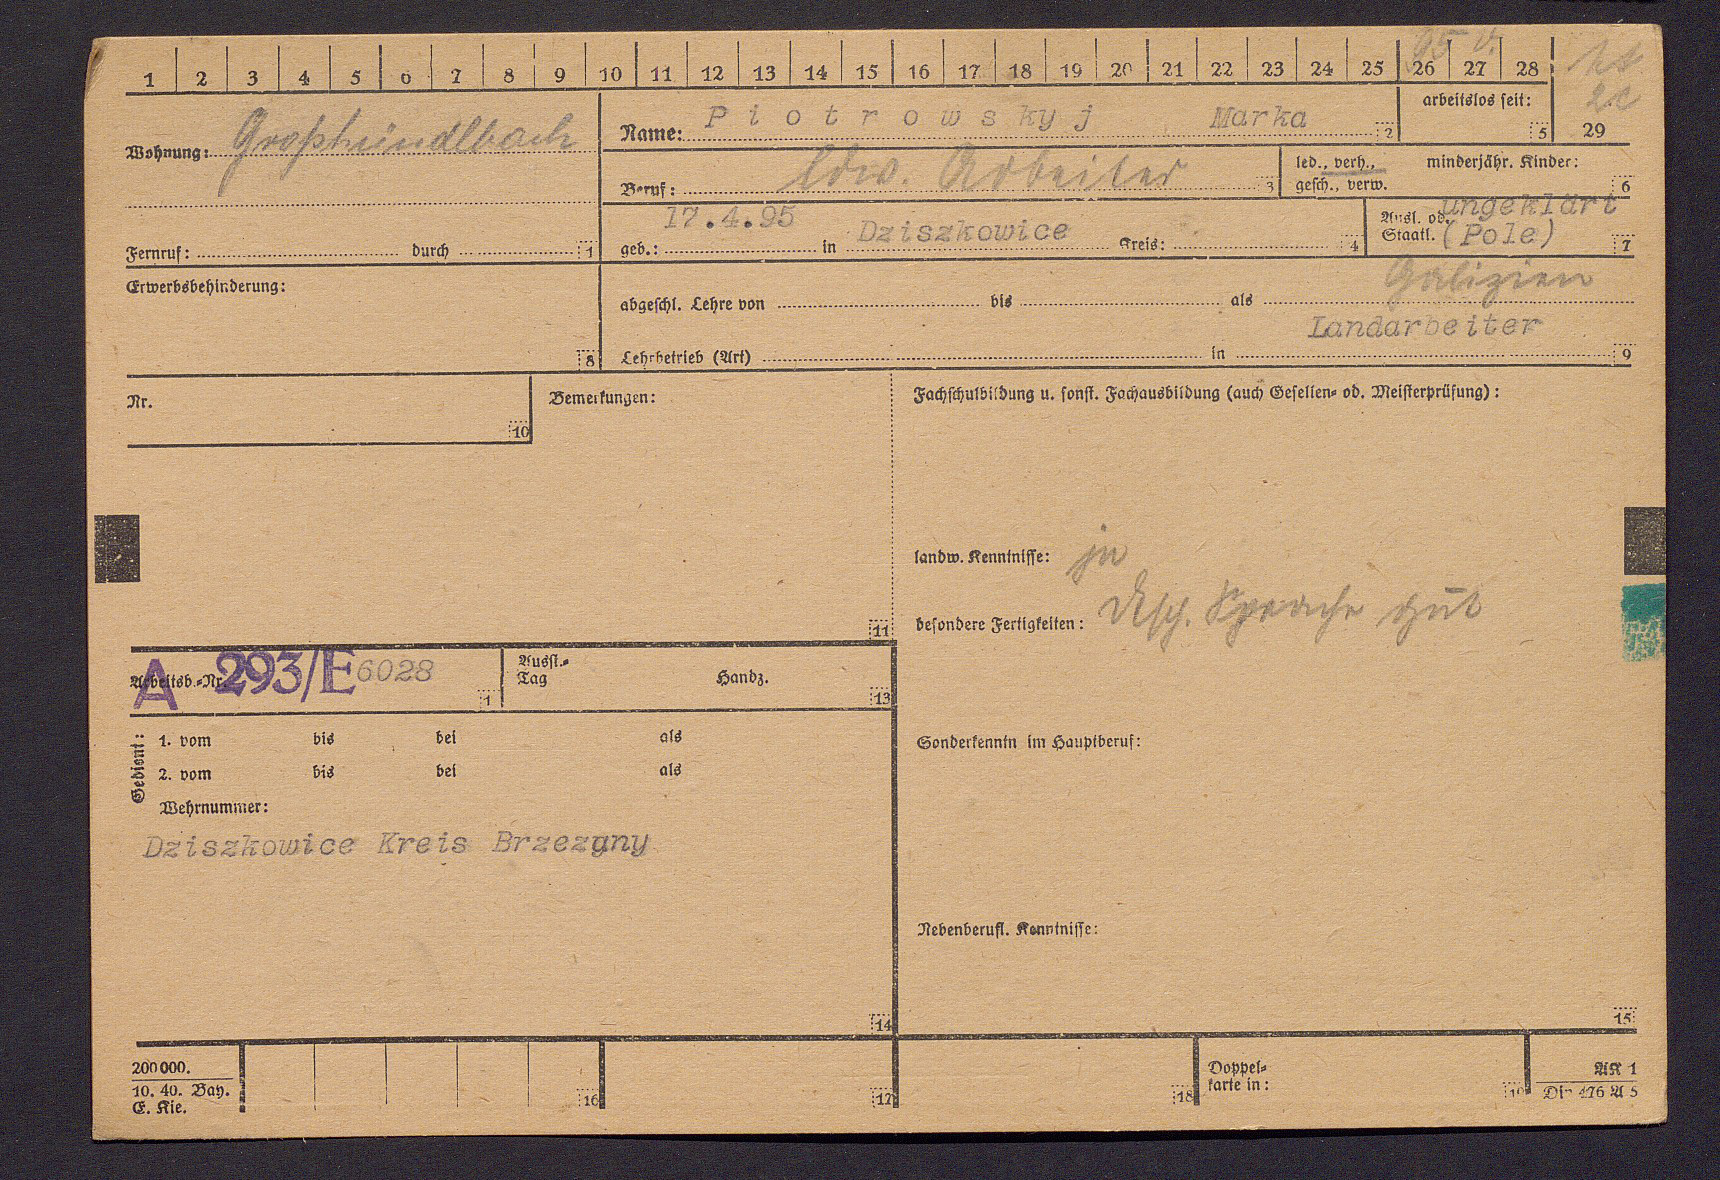 1 2 3 4 5 6 7 8 9 10 11 12 13 14 15 16 17 18 19 20 21 22 23 24 25 26 27 28
95
Wohnung: Großhündlbach
Name: Piotrowskyj Marka 2
arbeitslos seit: 5
29
Beruf: ldw. Arbeiter 3
led., verh., gesch., verw.
minderjähr. Kinder: 6
Fernruf: durch 1
geb.: 17.4.95 in Dziszkowice Kreis: 4
Ausl. od. Staatl. ungeklärt (Pole) 7
Erwerbsbehinderung: 8
Galizien
abgeschl. Lehre von bis als
Landarbeiter
Lehrbetrieb (Art) in 9
Nr. 10
Bemerkungen: 11
Fachschulbildung u. sonst. Fachausbildung (auch Gesellen- od. Meisterprüfung):
landw. Kenntnisse: ja
besondere Fertigkeiten: Dtsch. Sprache gut
A Arbeitsb.-Nr. 293/E 6028 1
Ausst.-Tag Handz. 13
Gedient:
1. vom bis bei als
2. vom bis bei als
Wehrnummer:
Dziszkowice Kreis Brzezany
14
Sonderkenntn im Hauptberuf:
Nebenberufl. Kenntnisse:
15
200000.
10. 40. Bay.
E. Kie.
16 17 18
Doppel-
karte in: 19
AK 1
Din 476 A 5